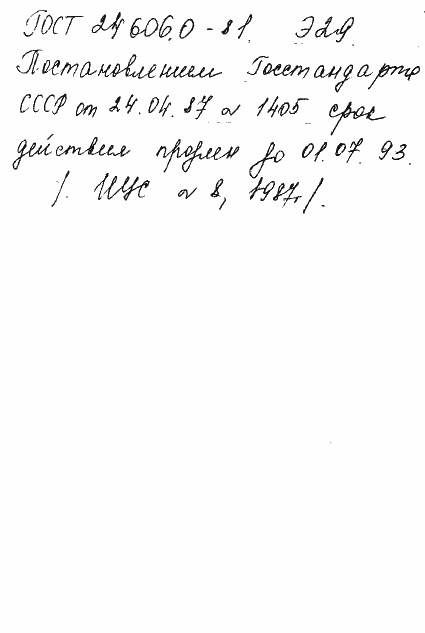 ГОСТ 24606.0-81. Э29
Постановлением Госстандарта
СССР от 24.04.87 № 1405 срок
действия продлен до 01.07.93.
/. ИУС № 8, 1987г/.